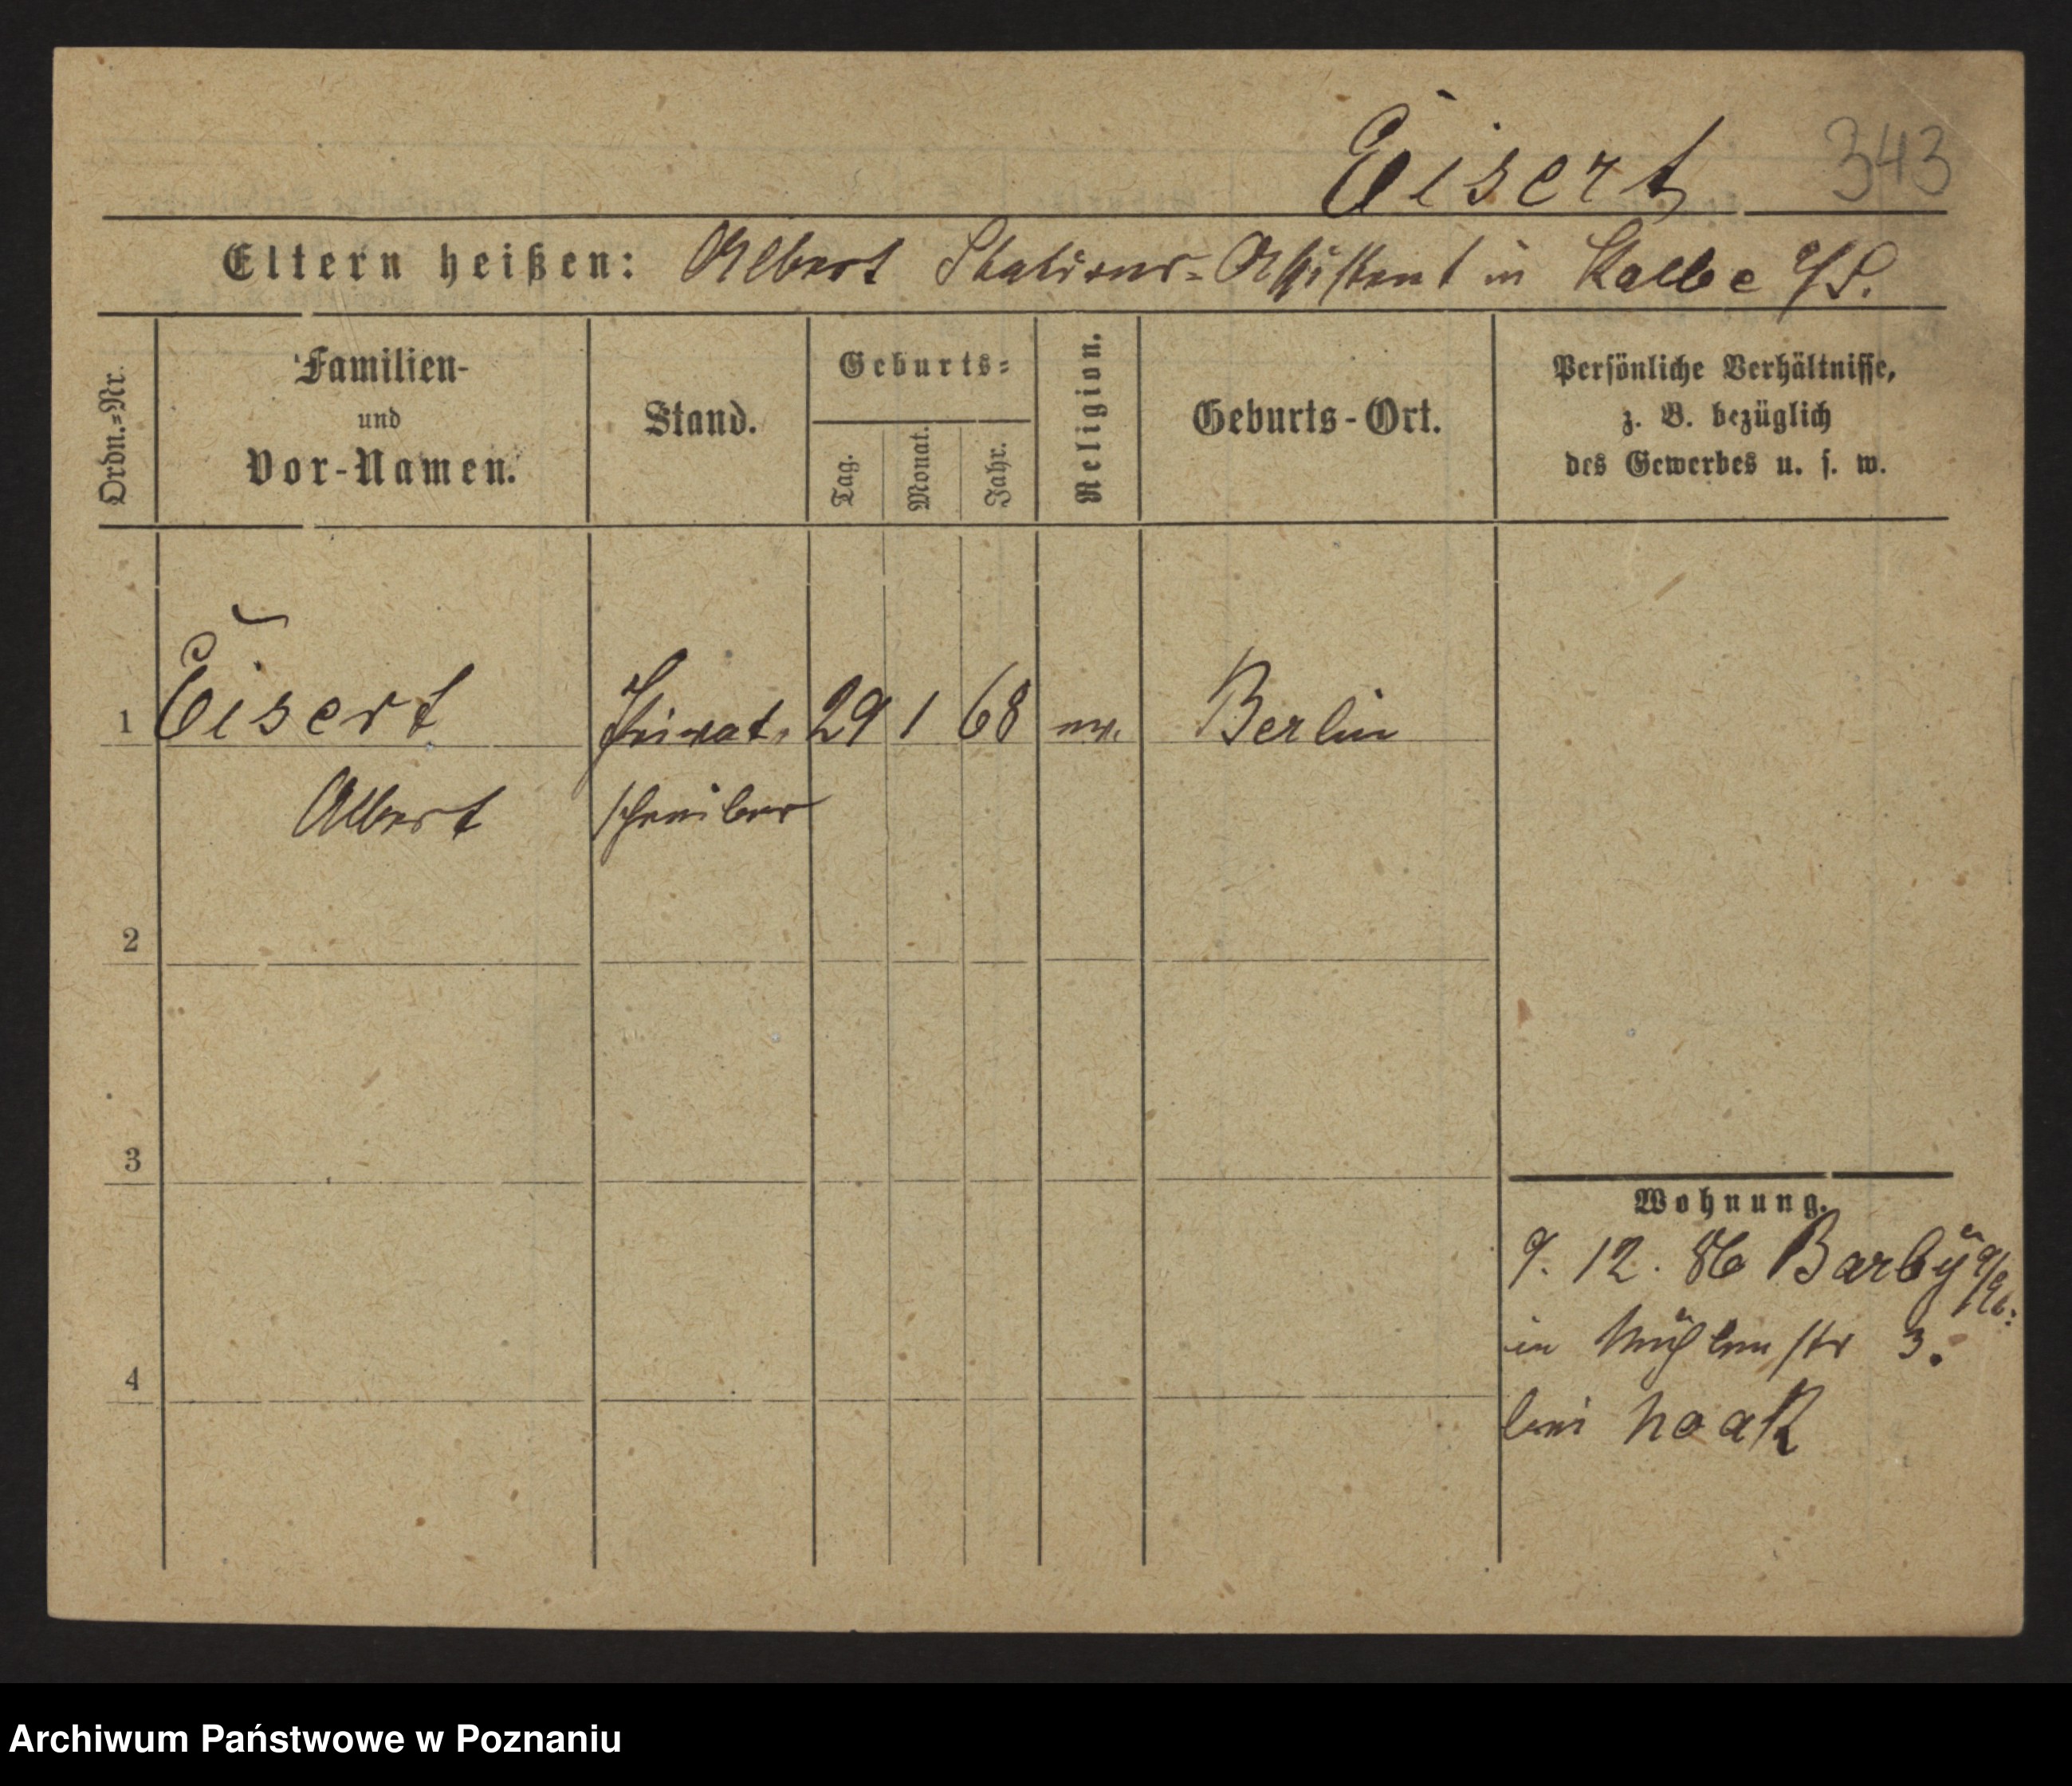 Eisert 343
Eltern heißen: Albert Stations-Assistent in Kalbe a/S.
Ordn.=Nr.
Familien-
und
Vor-Namen.
Stand.
Geburts=
Tag.
Monat.
Jahr.
Religion.
Geburts-Ort.
Persönliche Verhältnisse,
z. B. bezüglich
des Gewerbes u. s. w.
1 Eisert Privat- 29 1 68 ev. Berlin
Albert schreiber
2
3
4
Wohnung.
9. 12. 86 Barby a/Elb.
in Mühlenstr 3.
bei Noak
Archiwum Państwowe w Poznaniu